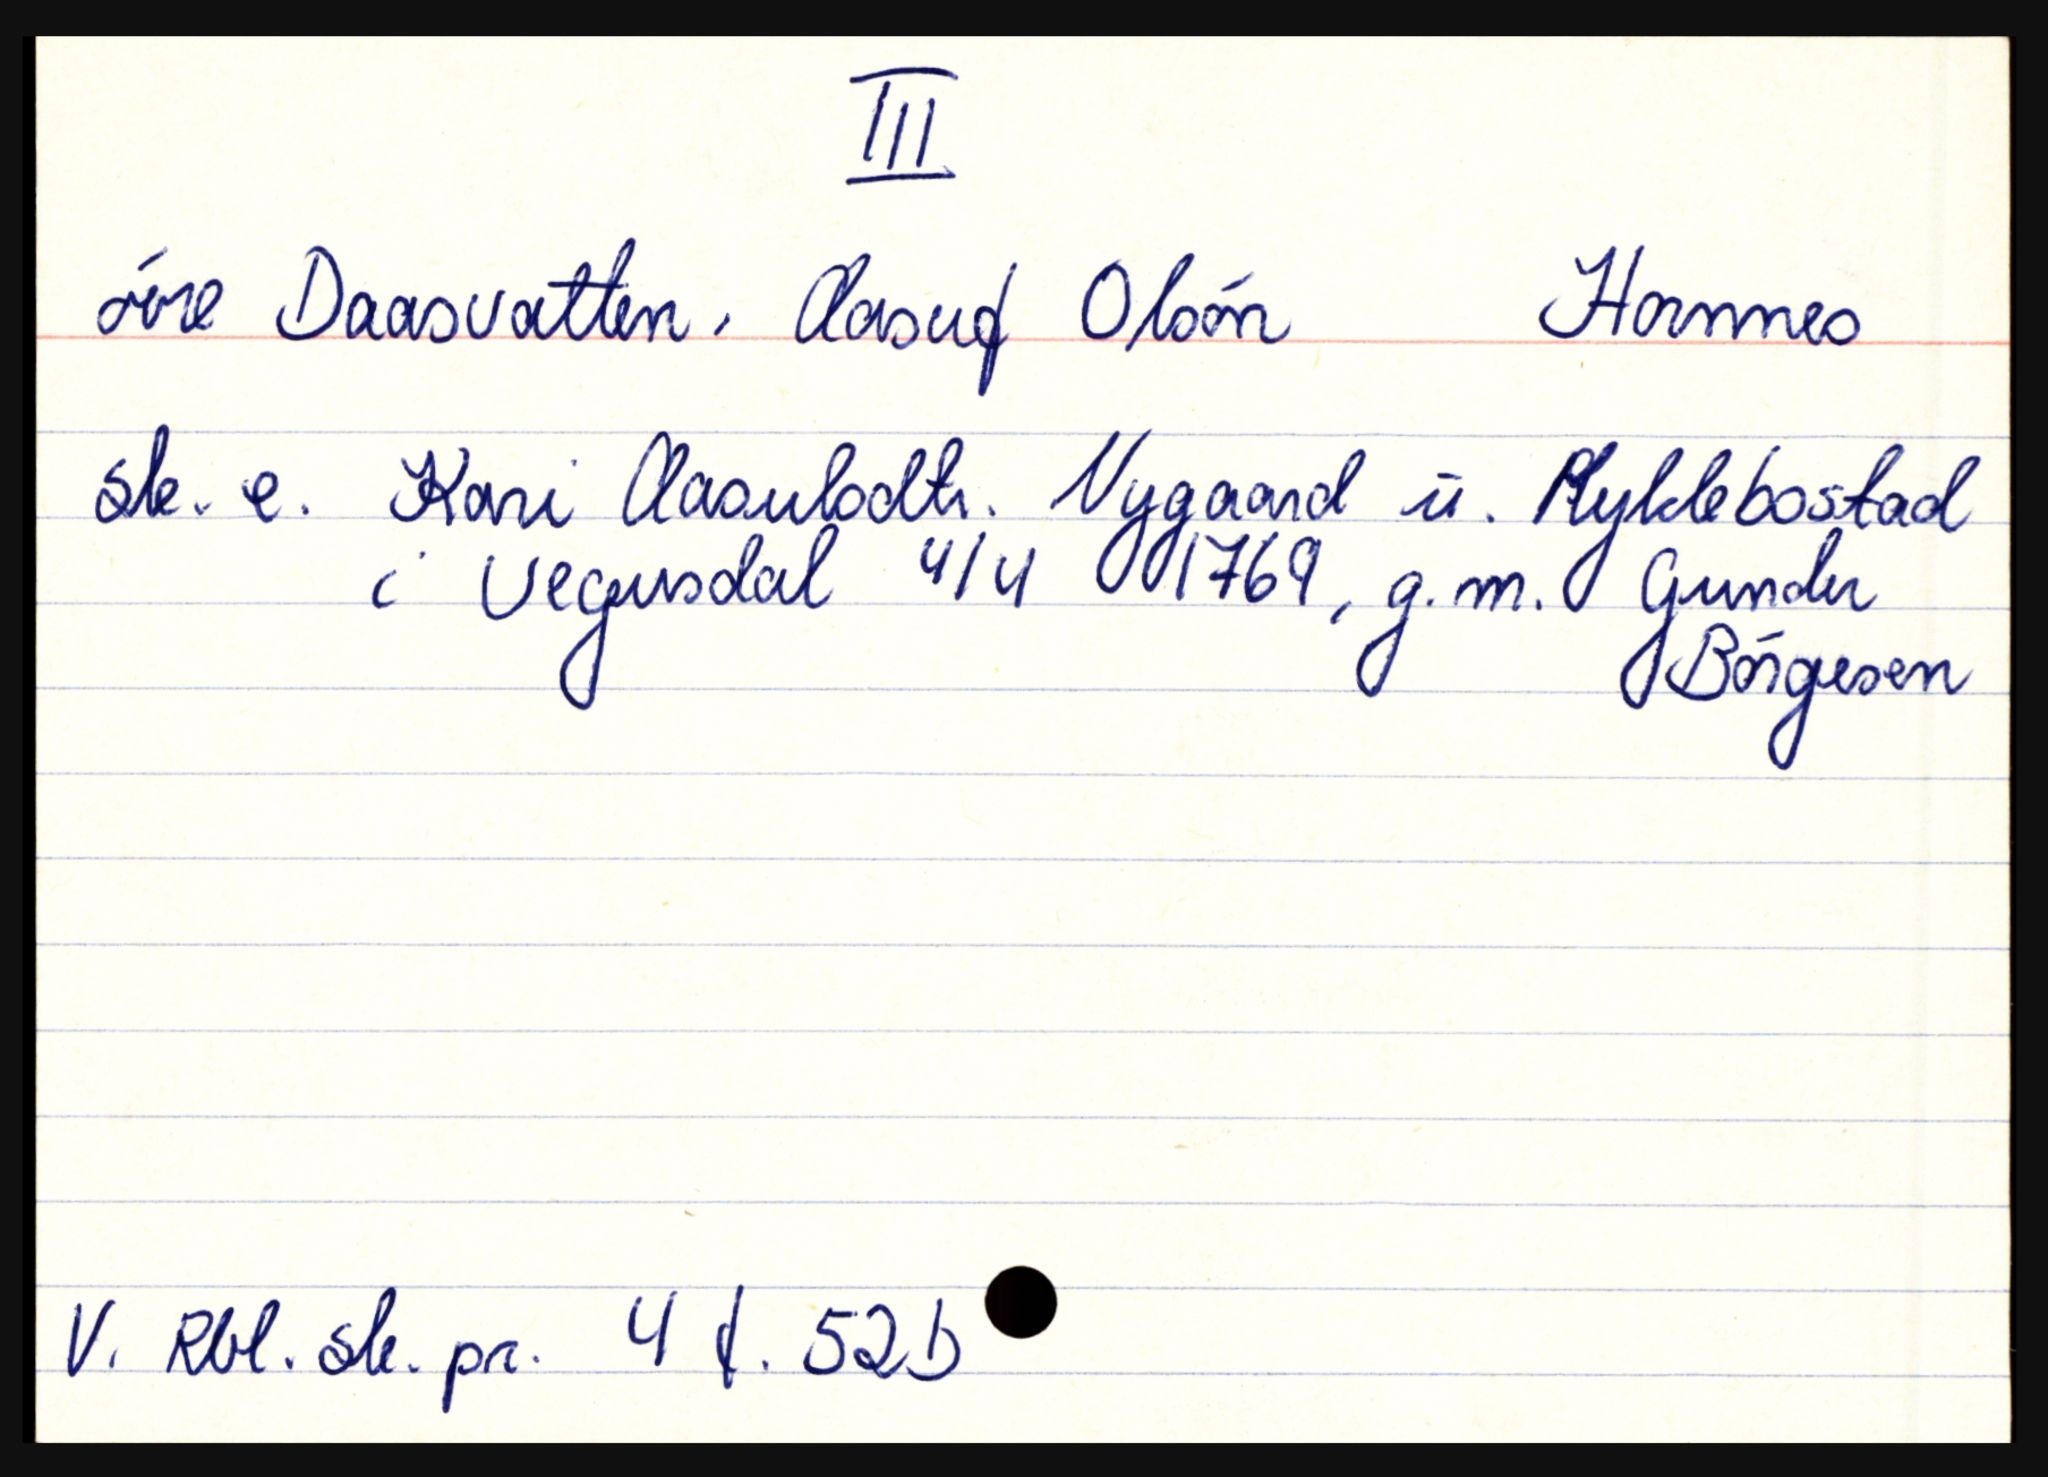 III
óvre Daasvatten. Aasuf Olsón Hornnes
sk. e. Kari Aasulsdtr. Nygaard u. Myklebostad
i Vegusdal 4/4 1769, g.m. Gunder
Börgesen
V. Rbl. sk. pr. 4 f. 52b